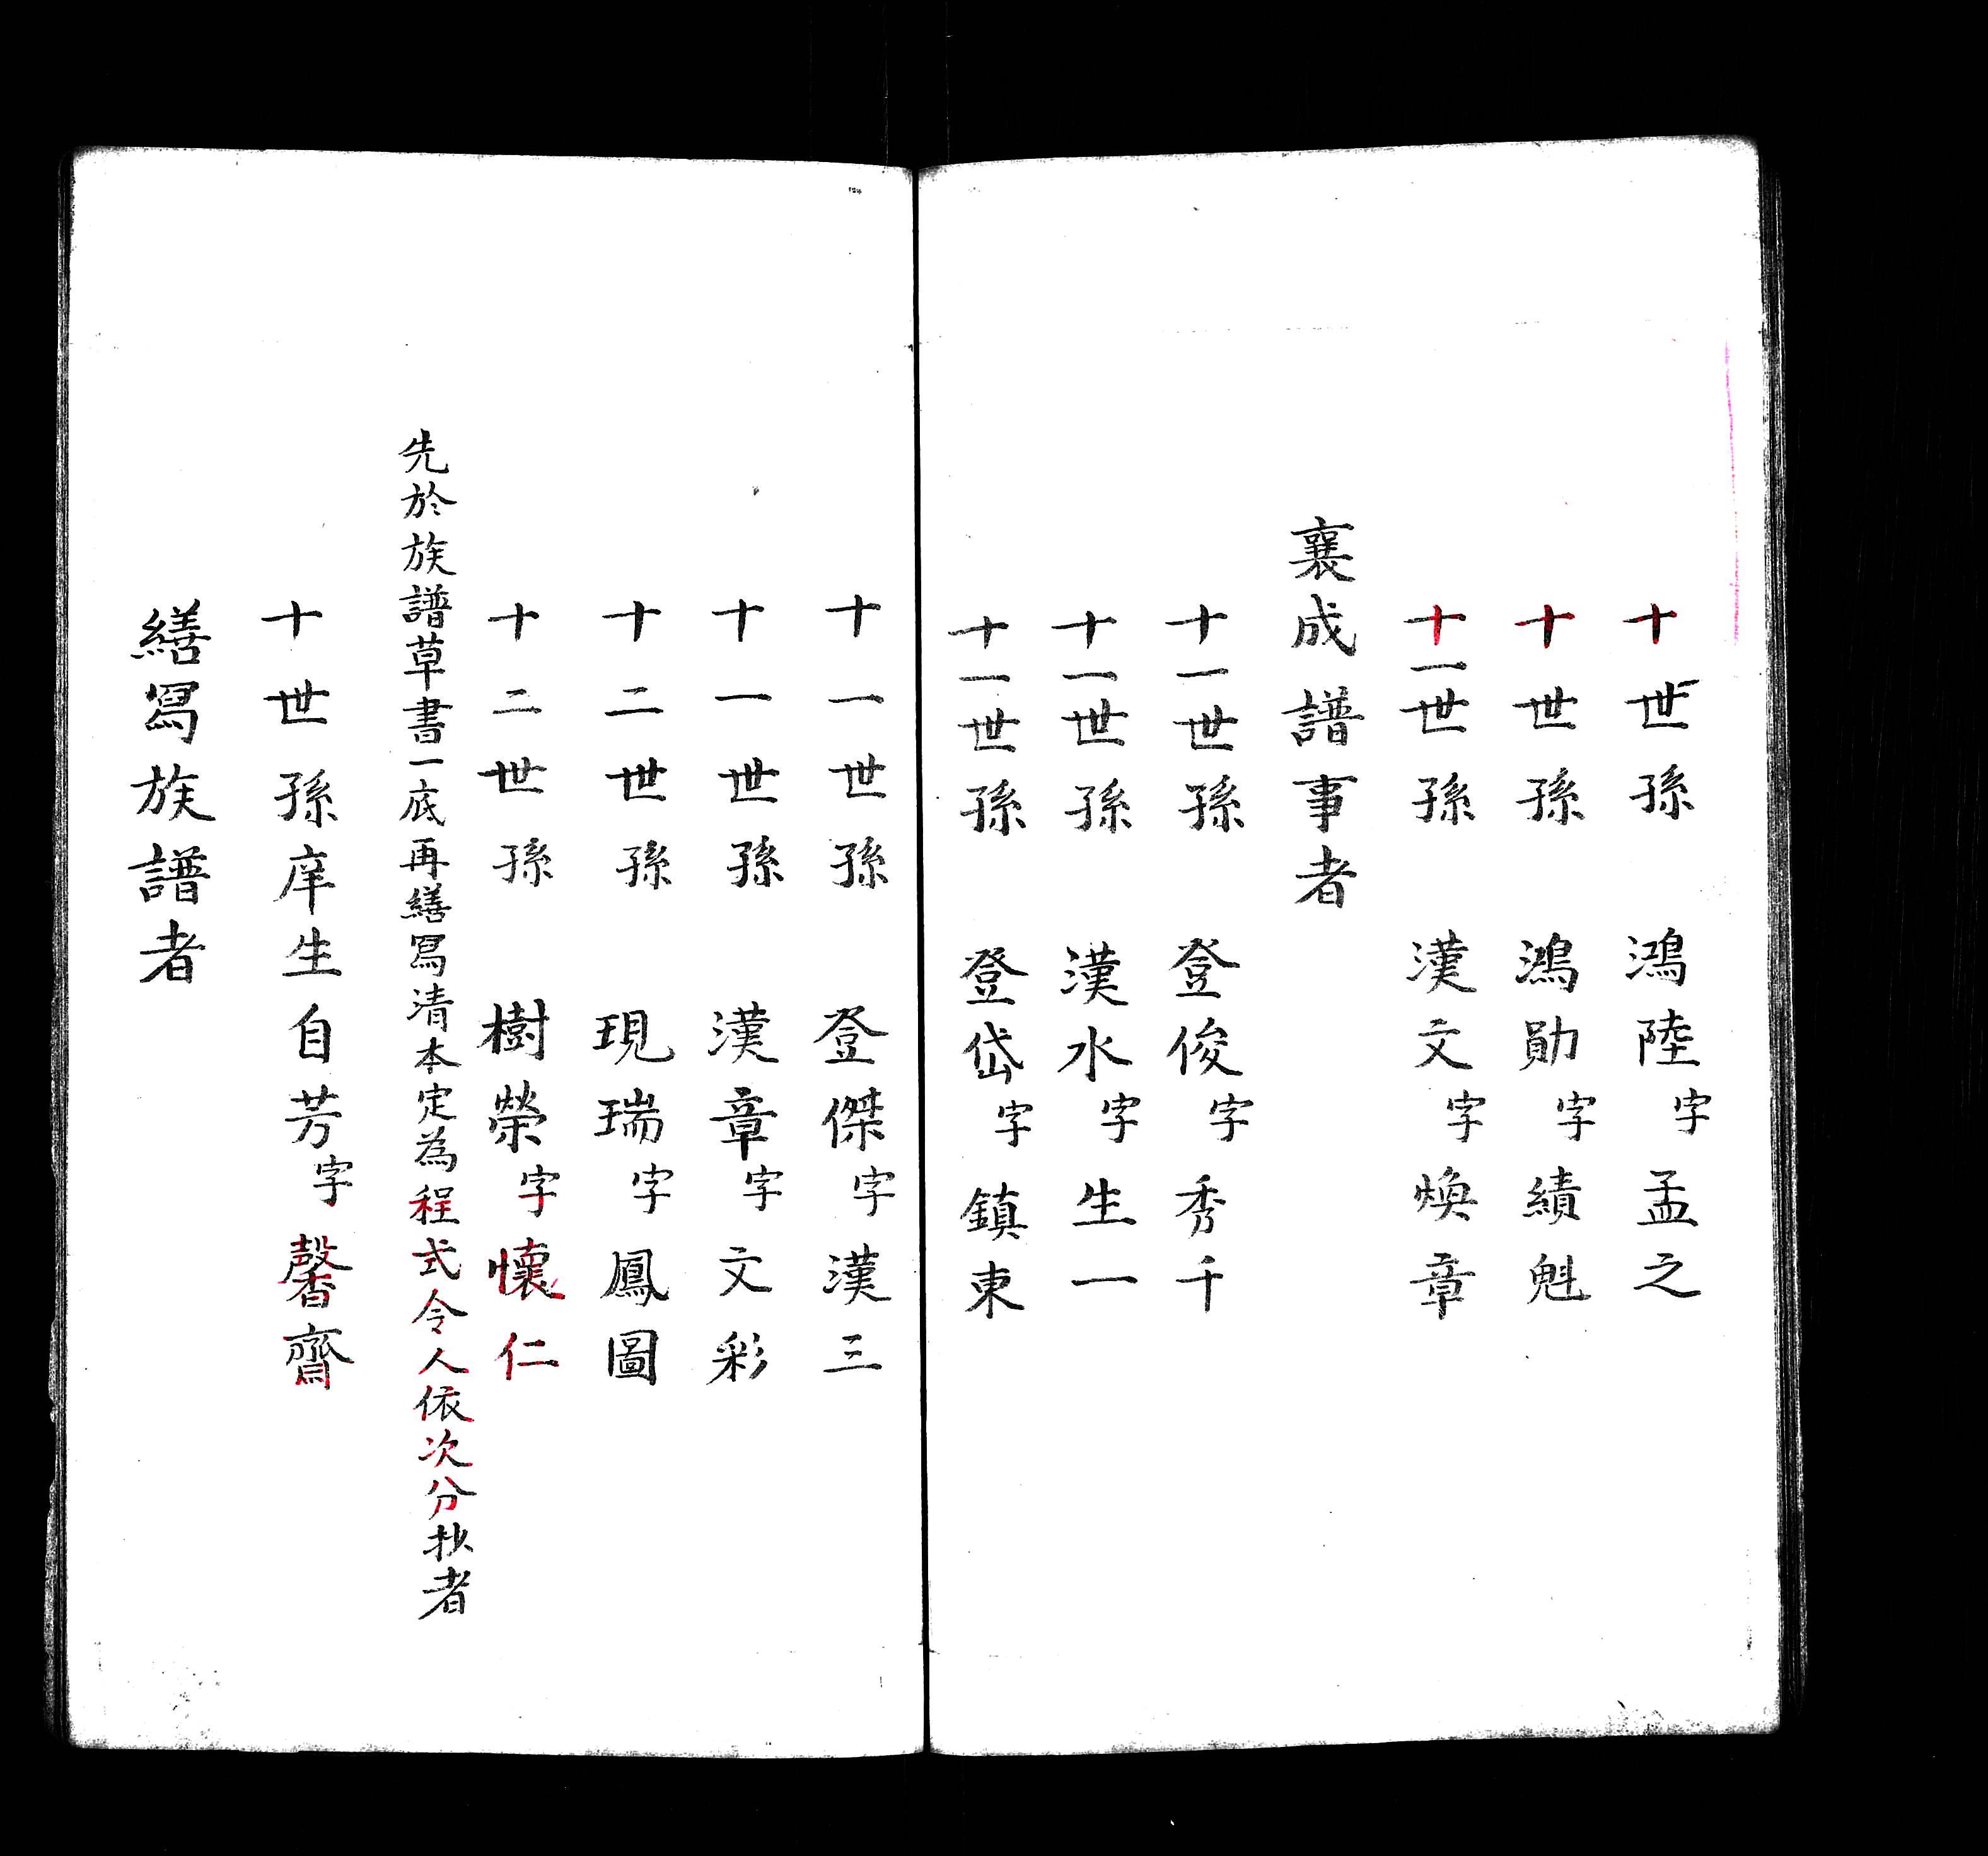 十世孫 鴻陸字孟之
十世孫 鴻勛字績魁
十一世孫 漢文字煥章
襄成譜事者
十一世孫 登俊字秀千
十一世孫 漢水字生一
十一世孫 登岱字鎮東
十一世孫 登傑字漢三
十一世孫 漢章字文彩
十二世孫 現瑞字鳳圖
十二世孫 樹榮字懷仁
先於族譜草書一底再繕寫清本定為程式令人依次分抄者
十世孫庠生自芳字馨齋
繕寫族譜者
124